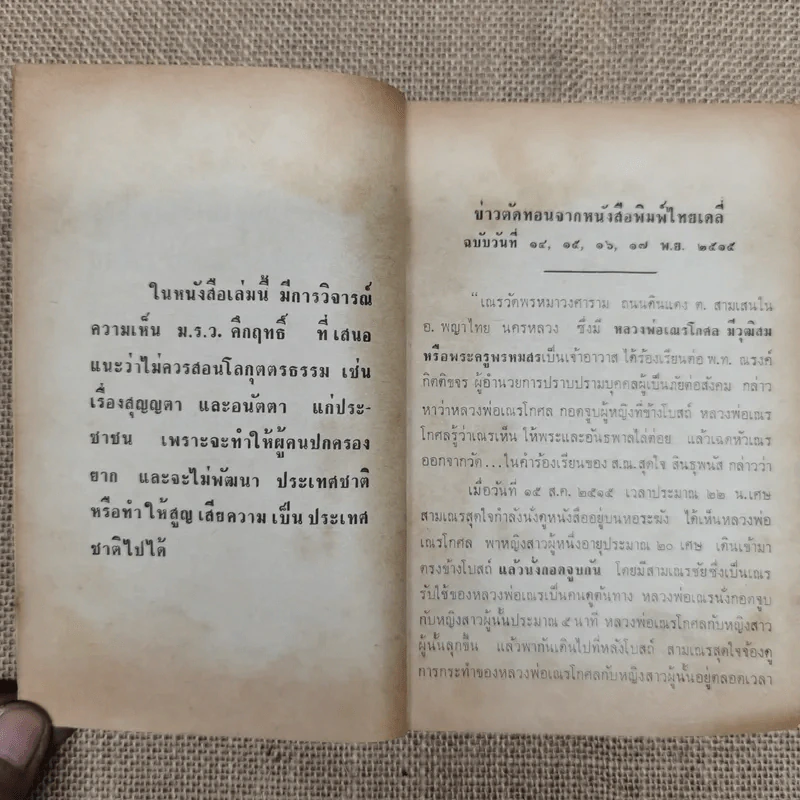 ในหนังสือเล่มนี้ มีการวิจารณ์
ความเห็น ม.ร.ว. คึกฤทธิ์ ที่เสนอ
แนะว่าไม่ควรสอนโลกุตตรธรรม เช่น
เรื่องสุญญตา และอนัตตา แก่ประ-
ชาชน เพราะจะทำให้ผู้คนปกครอง
ยาก และจะไม่พัฒนา ประเทศชาติ
หรือทำให้สูญเสียความเป็นประเทศ
ชาติไปได้
ข่าวตัดทอนจากหนังสือพิมพ์ไทยเดลี่
ฉบับวันที่ ๑๔, ๑๕, ๑๖, ๑๗ พ.ย. ๒๕๑๕
"เณรวัดพรหมาวงศาราม ถนนดินแดง ต. สามเสนใน
อ. พญาไทย นครหลวง ซึ่งมี หลวงพ่อเณรโกศล มีวุฒิสม
หรือพระครูพรหมสรเป็นเจ้าอาวาส ได้ร้องเรียนต่อ พ.ท. ณรงค์
กิตติขจร ผู้อำนวยการปราบปรามบุคคลผู้เป็นภัยต่อสังคม กล่าว
หาว่าหลวงพ่อเณรโกศล กอดจูบผู้หญิงที่ข้างโบสถ์ หลวงพ่อเณร
โกศลรู้ว่าเณรเห็น ให้พระและอันธพาลไล่ต่อย แล้วเฉดหัวเณร
ออกจากวัด...ในคำร้องเรียนของ ส.ณ.สุดใจ สินธุพนัส กล่าวว่า
เมื่อวันที่ ๑๕ ส.ค. ๒๕๑๕ เวลาประมาณ ๒๒ น.เศษ
สามเณรสุดใจกำลังนั่งดูหนังสืออยู่บนหอระฆัง ได้เห็นหลวงพ่อ
เณรโกศล พาหญิงสาวผู้หนึ่งอายุประมาณ ๒๐ เศษ เดินเข้ามา
ตรงข้างโบสถ์ แล้วนั่งกอดจูบกัน โดยมีสามเณรชัยซึ่งเป็นเณร
รับใช้ของหลวงพ่อเณรเป็นคนดูต้นทาง หลวงพ่อเณรนั่งกอดจูบ
กับหญิงสาวผู้นั้นประมาณ ๕ นาที หลวงพ่อเณรโกศลกับหญิงสาว
ผู้นั้นลุกขึ้น แล้วพากันเดินไปที่หลังโบสถ์ สามเณรสุดใจจ้องดู
การกระทำของหลวงพ่อเณรโกศลกับหญิงสาวผู้นั้นอยู่ตลอดเวลา